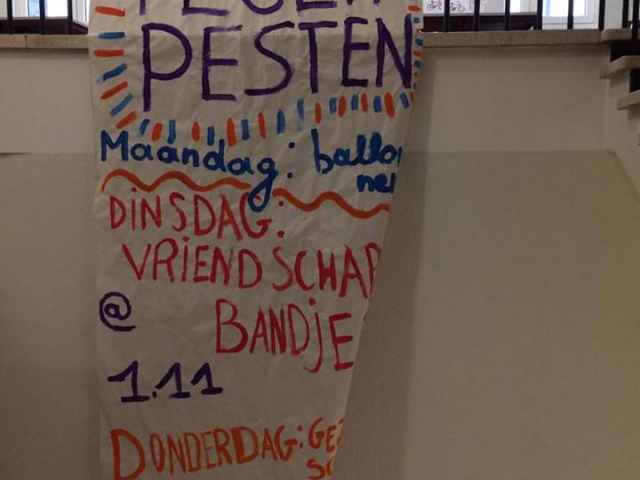 PESTEN
Maandag:
DINSDAG:
VRIENDSCHAP
@ BANDJE
1.11
DONDERDAG: